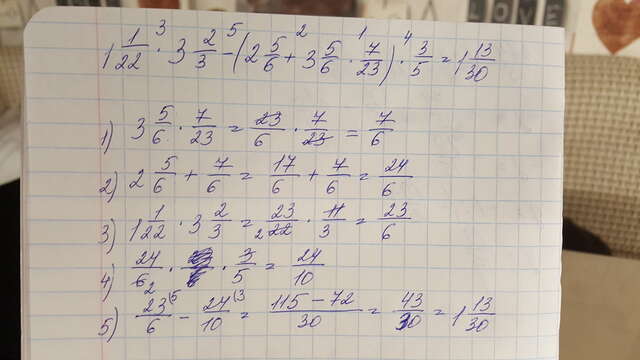 LOVE
3 5 2 1 4
1 1/22 · 3 2/3 - (2 5/6 + 3 5/6 · 7/23) · 3/5 = 1 13/30
1) 3 5/6 · 7/23 = 23/6 · 7/23 = 7/6
2) 2 5/6 + 7/6 = 17/6 + 7/6 = 24/6
3) 1 1/22 · 3 2/3 = 23/2 22 · 11/3 = 23/6
4) 24/6 2 · 3/5 = 24/10
5) 23(5/6 - 24(3/10 = 115 - 72/30 = 43/30 = 1 13/30